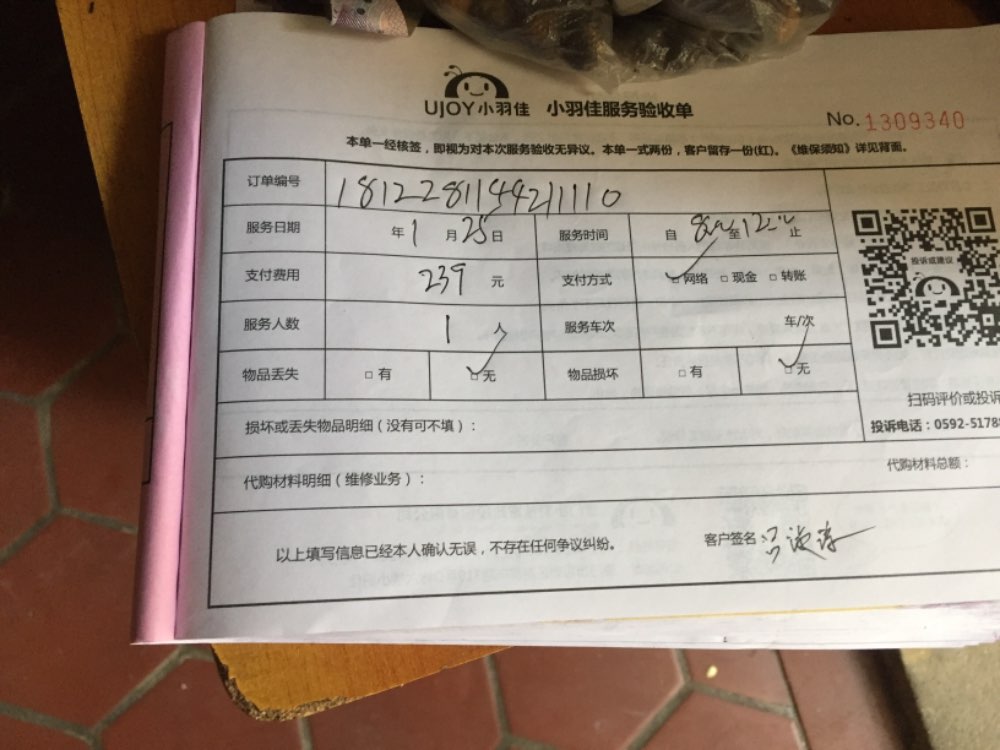 UJOY小羽佳 小羽佳服务验收单
No. 1309340
本单一经核签，即视为对本次服务验收无异议。本单一式两份，客户留存一份(红)。《维保须知》详见背面。
订单编号 181228114421110
服务日期 年1月25日 服务时间 自 至 止
支付费用 239 元 支付方式 网络 现金 转账
投诉或建议
服务人数 1 人 服务车次 车/次
物品丢失 有 无 物品损坏 有 无
扫码评价或投诉
损坏或丢失物品明细（没有可不填）：
投诉电话：0592-5178
代购材料明细（维修业务）：
代购材料总额：
以上填写信息已经本人确认无误，不存在任何争议纠纷。
客户签名